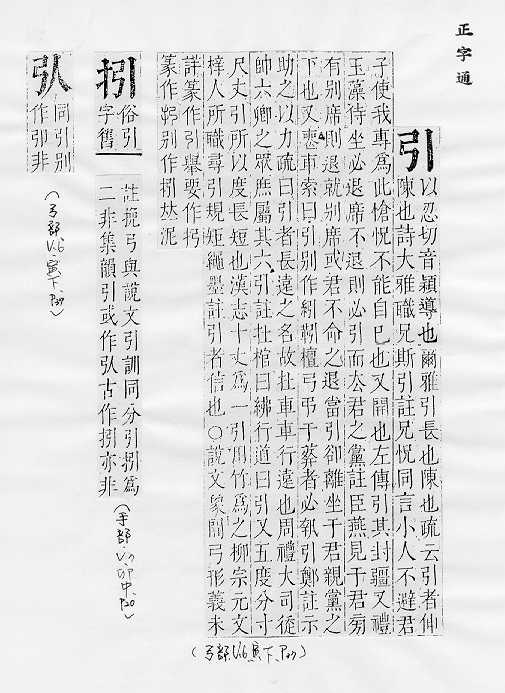 正字通
引
以忍切音顈導也爾雅引長也陳也疏云引者伸
陳也詩大雅職兄斯引註兄怳同言小人不避君
子使我專爲此愴怳不能自已也又開也左傳引其封疆又禮
玉藻侍坐必退席不退則必引而去君之黨註臣燕見于君旁
有別席則退就別席或君不命之退當引卻離坐于君親黨之
下也又喪車索曰引別作紖靷檀弓弔于葬者必執引鄭註示
助之以力疏曰引者長遠之名故在車車行遠也周禮大司徒
帥六鄉之眾庶屬其六引註在棺曰紼行道曰引又五度分寸
尺丈引所以度長短也漢志十丈爲一引用竹爲之柳宗元文
梓人所職尋引規矩繩墨註引者信也○說文象開弓形義未
詳篆作引舉要作
篆作別作
(弓部V.6寅下,P27)
㧈
俗引
字舊
註挽弓與說文引訓同分引㧈爲
二非集韻引或作弞古作㧈亦非
(手部V.7卯中,P20)
弞
同引別
作卭非
(弓部V.6寅下,P27)